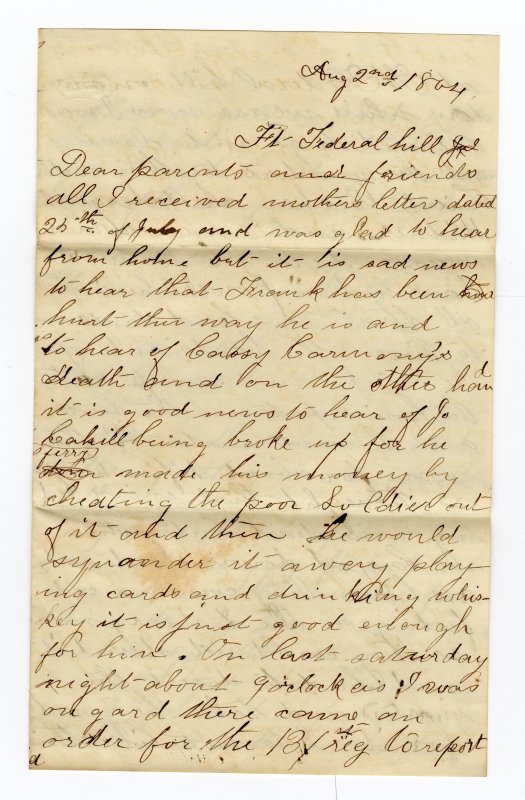 Aug 2nd 1864
Ft Federal hill
Dear parents and friends
all I received mothers letter dated
25th of July and was glad to hear
from home but it is sad news
to hear that Frank has been
hurt the way he is and
to hear of Cassy Carmony's
death and on the other hand
it is good news to hear of Jo
Cahill being broke up for he
made his money by
cheating the poor Soldier out
of it and then he would
squander it awery play
ing cards and drinking whis-
key it is just good enough
for him. On last saturday
night about 9 oclock as I was
on gard there came an
order for the 131st reg to report